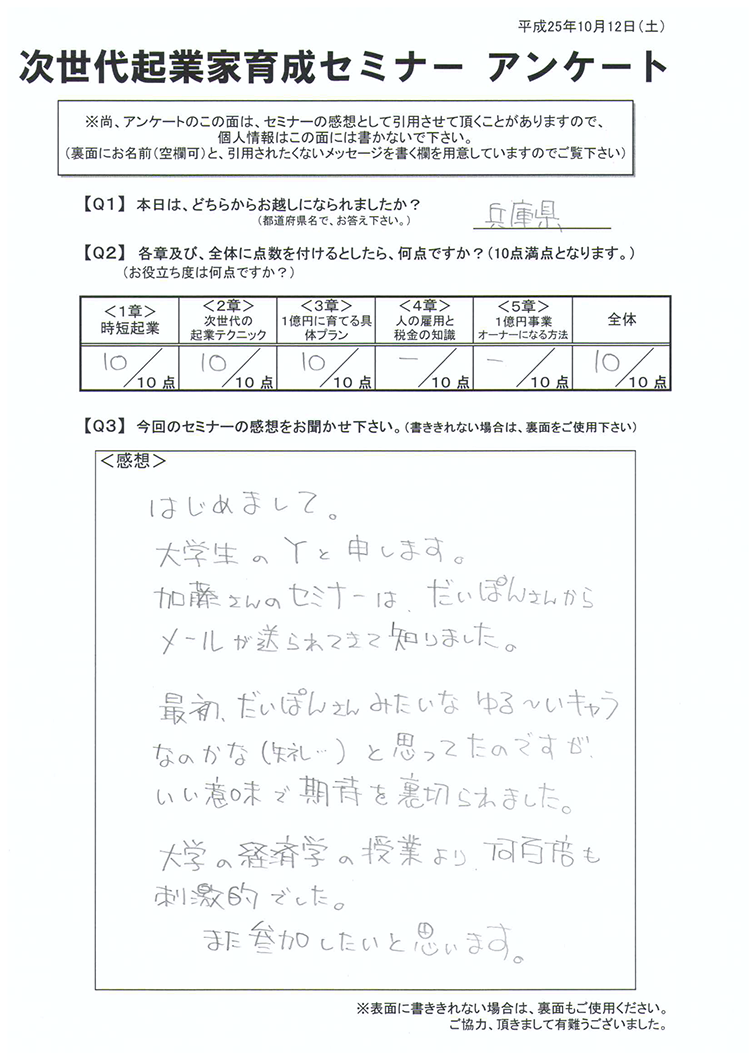 平成25年10月12日(土)
次世代起業家育成セミナー アンケート
※尚、アンケートのこの面は、セミナーの感想として引用させて頂くことがありますので、
個人情報はこの面には書かないで下さい。
(裏面にお名前(空欄可)と、引用されたくないメッセージを書く欄を用意していますのでご覧下さい)
【Q1】 本日は、どちらからお越しになられましたか? 兵庫県
(都道府県名で、お答え下さい。)
【Q2】 各章及び、全体に点数を付けるとしたら、何点ですか?(10点満点となります。)
(お役立ち度は何点ですか?)
<1章>
時短起業
<2章>
次世代の
起業テクニック
<3章>
1億円に育てる具
体プラン
<4章>
人の雇用と
税金の知識
<5章>
1億円事業
オーナーになる方法
全体
10/10点
10/10点
10/10点
―/10点
―/10点
10/10点
【Q3】 今回のセミナーの感想をお聞かせ下さい。(書ききれない場合は、裏面をご使用下さい)
<感想>
はじめまして。
大学生のYと申します。
加藤さんのセミナーは、だいぽんさんから
メールが送られてきて知りました。
最初、だいぽんさんみたいな ゆる～いキャラ
なのかな(失礼…)と思ってたのですが、
いい意味で期待を裏切られました。
大学の経済学の授業より、何百倍も
刺激的でした。
また参加したいと思います。
※表面に書ききれない場合は、裏面もご使用ください。
ご協力、頂きまして有難うございました。